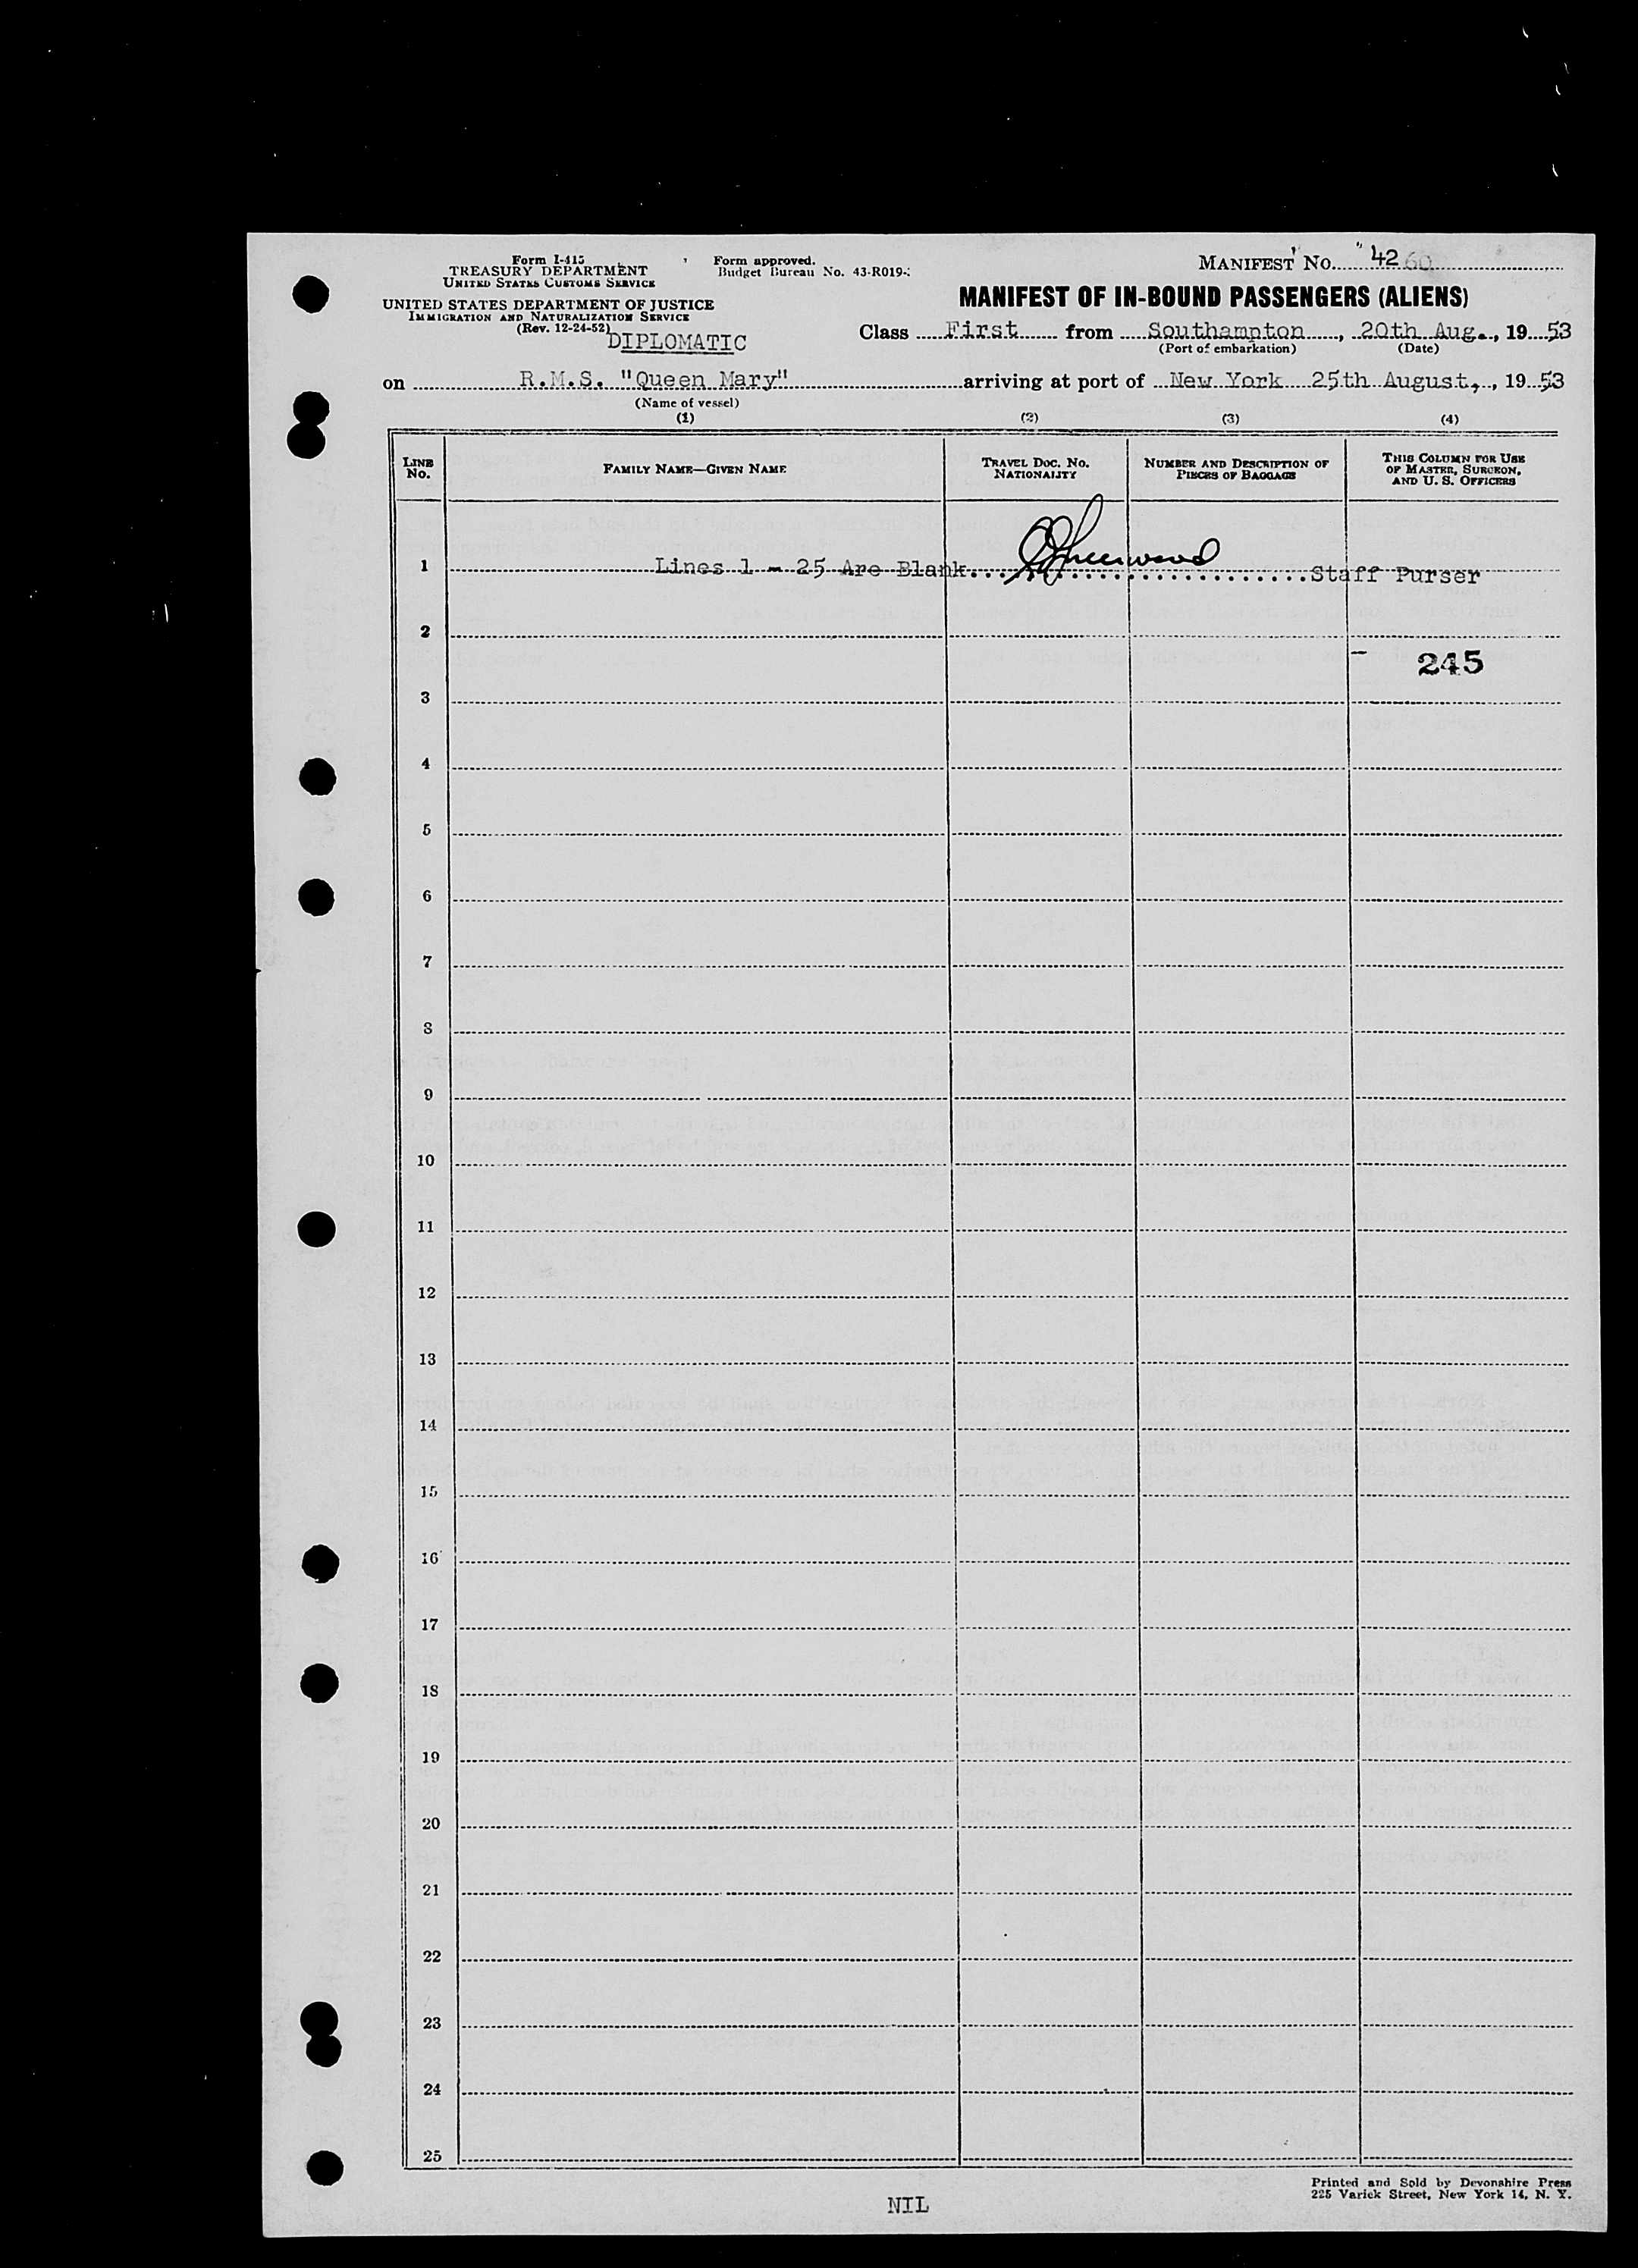 Form I-415
TREASURY DEPARTMENT
UNITED STATES CUSTOMS SERVICE
UNITED STATES DEPARTMENT OF JUSTICE
IMMIGRATION AND NATURALIZATION SERVICE
(Rev. 12-24-52)
DIPLOMATIC
Form approved.
Budget Bureau No. 43-R019-
MANIFEST NO. 42
MANIFEST OF IN-BOUND PASSENGERS (ALIENS)
Class First from Southampton, 20th Aug., 1953
(Port of embarkation) (Date)
on R.M.S. "Queen Mary" arriving at port of New York 25th August,, 1953
(Name of vessel)
(1) (2) (3) (4)
LINE NO.
FAMILY NAME—GIVEN NAME
TRAVEL DOC. NO. NATIONALITY
NUMBER AND DESCRIPTION OF PIECES OF BAGGAGE
THIS COLUMN FOR USE OF MASTER, SURGEON, AND U. S. OFFICERS
1 Lines 1 - 25 Are Blank. Staff Purser
2
245
3
4
5
6
7
8
9
10
11
12
13
14
15
16
17
18
19
20
21
22
23
24
25
Printed and Sold by Devonshire Press
225 Varick Street, New York 14, N. Y.
NIL